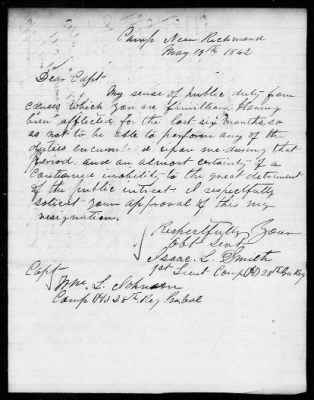 Camp Near Richmond
May 18th 1862
Dear Capt
My sense of public duty from
causes which you are familliar, Having
been affected for the last six months so
as not to be able to perform any of the
duties encumbed upon me during that
period, and an almost certainty of a
continued inability to the great detriment
of the public intrest. I respectfully
solicit your approval of this my
resignation.
Respectfully Your
Obt Servt
Isaac L. Smith
1st Lieut Comp 28th Ga Reg
Capt
Wm. L. Johnson
Comp 28th Reg